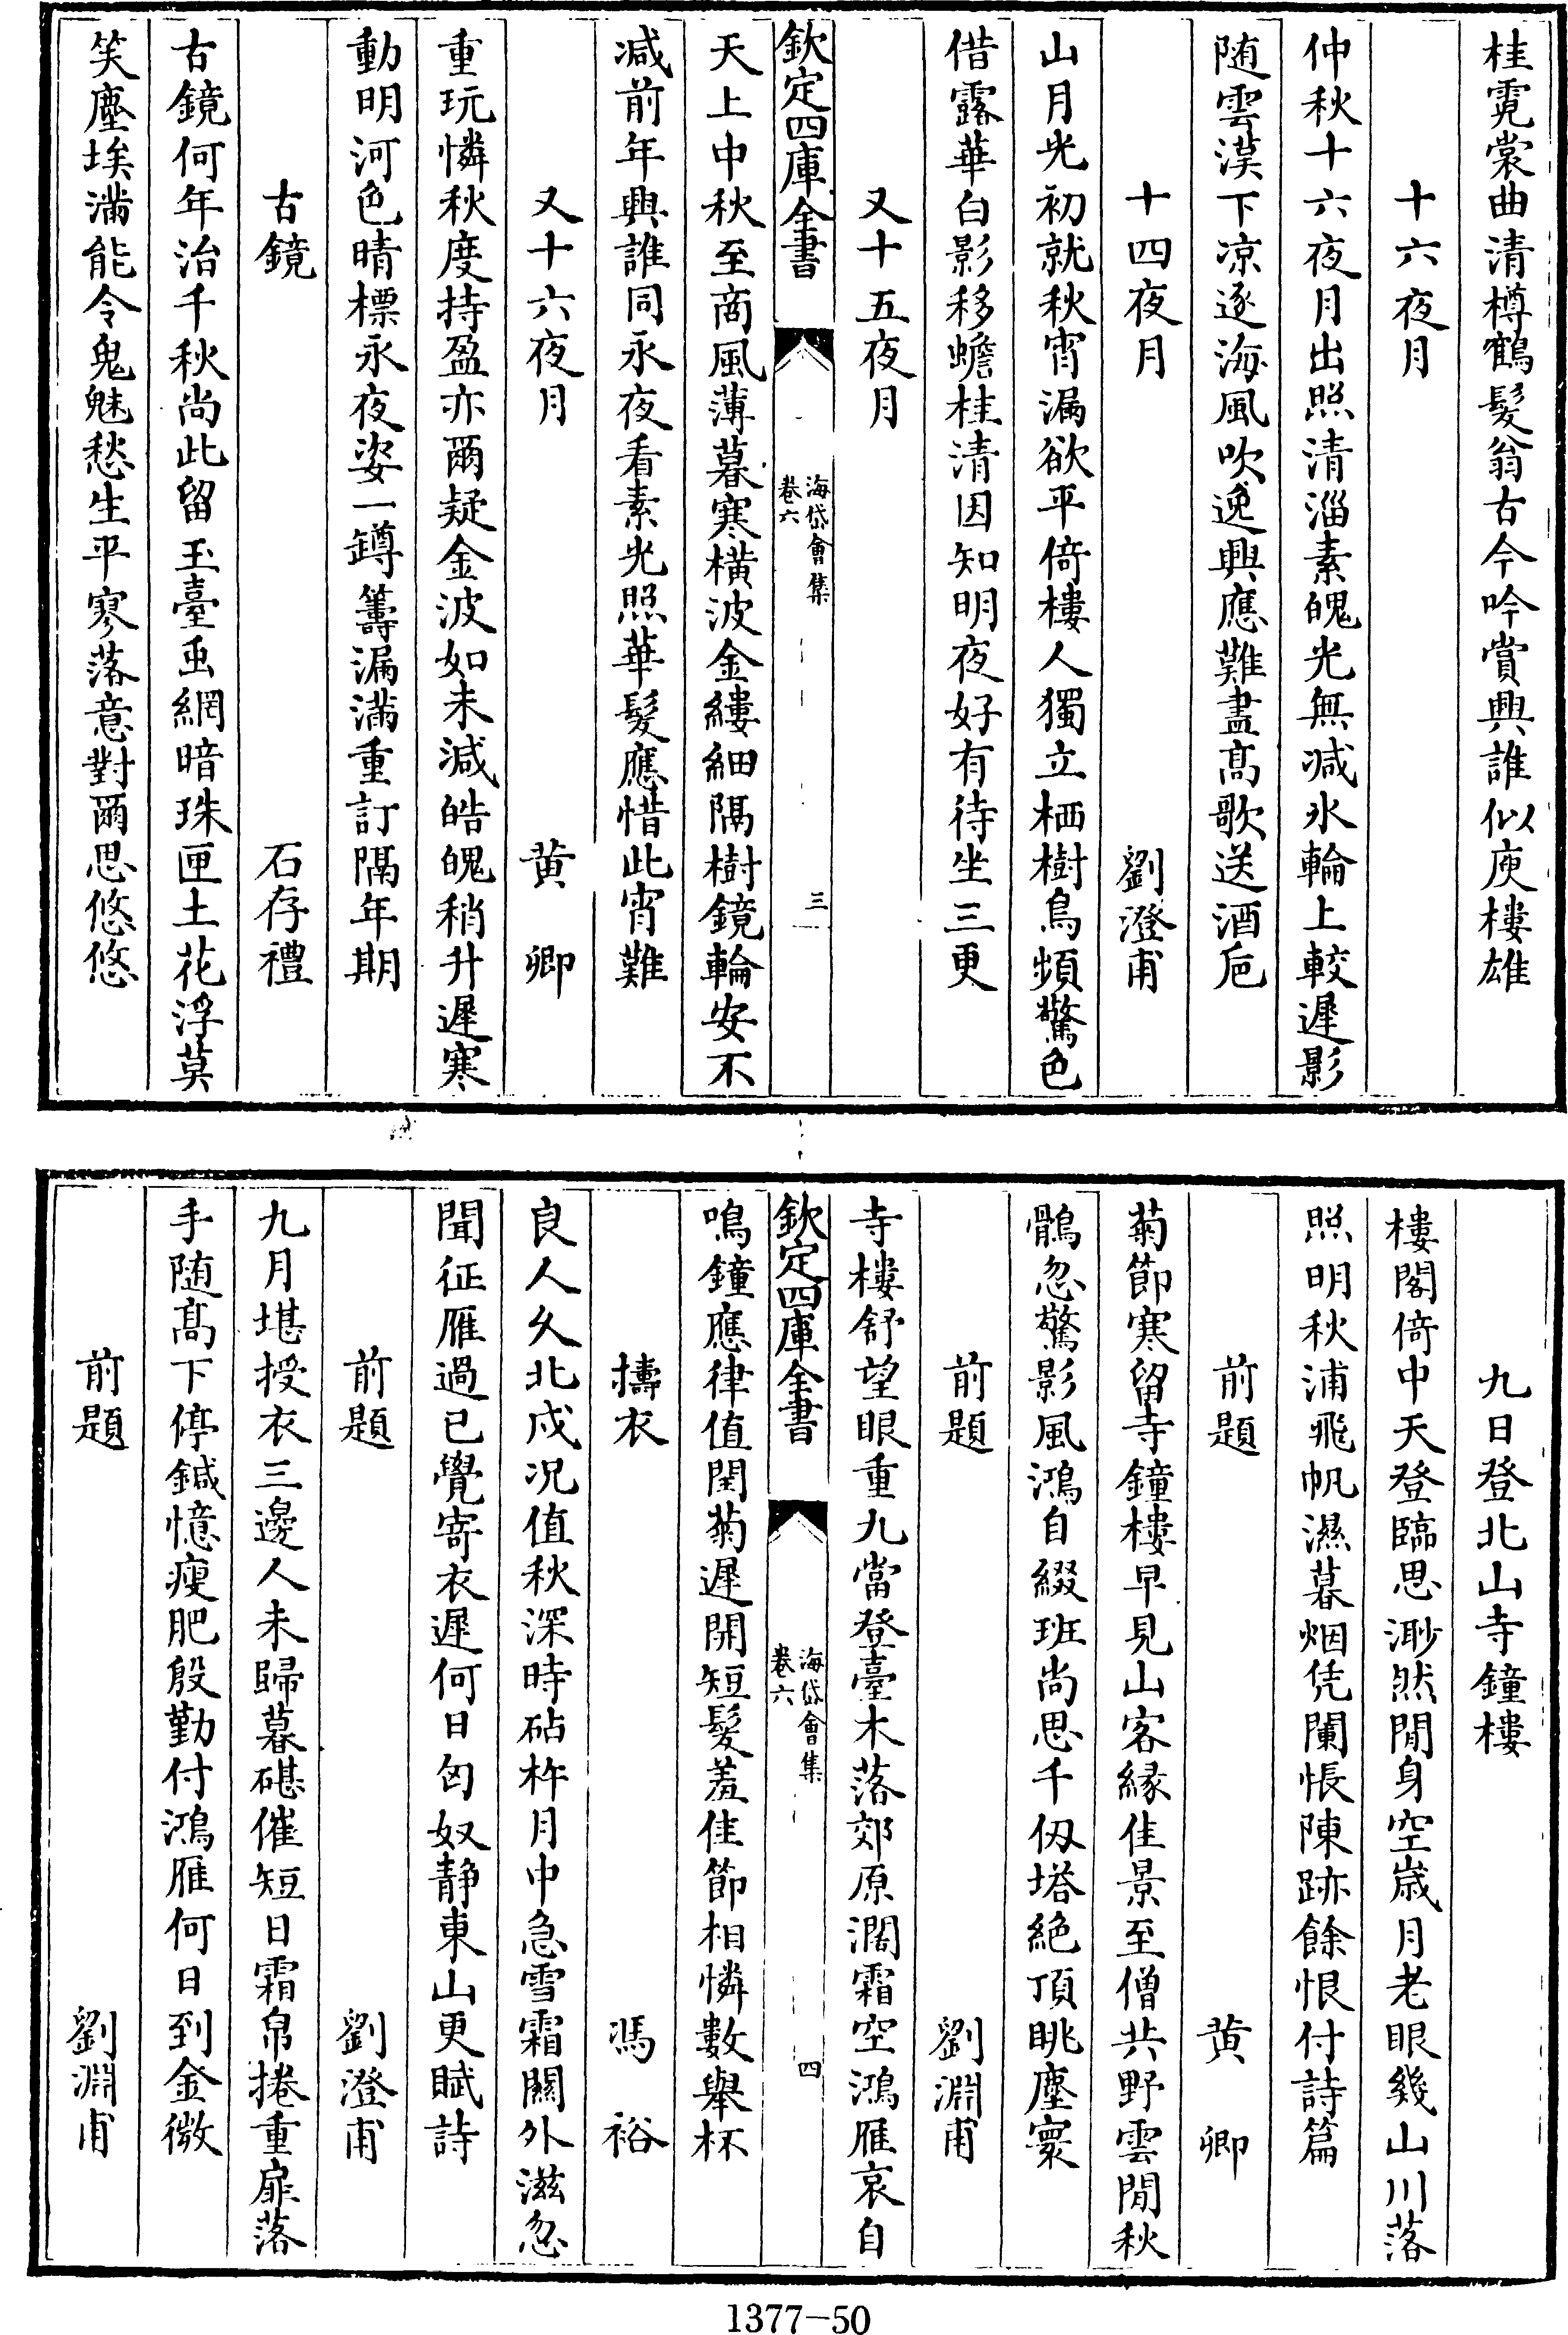 桂霓裳曲清樽鶴髮翁古今吟賞興誰似庾樓雄
十六夜月
仲秋十六夜月出照清淄素魄光無减氷輪上較遲影
随雲漢下凉逐海風吹逸興應難盡髙歌送酒巵
十四夜月　劉澄甫
山月光初就秋宵漏欲平倚樓人獨立栖樹鳥頻驚色
借露華白影移蟾桂清因知明夜好有待坐三更
又十五夜月
欽定四庫全書
海岱會集
卷六
三
天上中秋至商風薄暮寒横波金縷細隔樹鏡輪安不
减前年興誰同永夜看素光照華髮應惜此宵難
又十六夜月　黄卿
重玩憐秋度持盈亦爾疑金波如未減皓魄稍升遲寒
動明河色晴標永夜姿一罇籌漏滿重訂隔年期
古鏡　石存禮
古鏡何年冶千秋尚此留玉臺䖝網暗珠匣土花浮莫
笑塵埃滿能令鬼魅愁生平寥落意對爾思悠悠
九日登北山寺鐘樓
樓閣倚中天登臨思渺然閒身空歳月老眼幾山川落
照明秋浦飛帆濕暮烟凭闌悵陳跡餘恨付詩篇
前題　黄卿
菊節寒留寺鐘樓早見山客緣佳景至僧共野雲閒秋
鶻忽驚影風鴻自綴班尚思千仭塔絶頂眺塵寰
前題　劉淵甫
寺樓舒望眼重九當登臺木落郊原濶霜空鴻雁哀自
欽定四庫全書
海岱會集
卷六
四
鳴鐘應律值閏菊遲開短髮羞佳節相憐數舉杯
擣衣　馮裕
良人久北戍况值秋深時砧杵月中急雪霜闗外滋忽
聞征雁過已覺寄衣遲何日匈奴静東山更賦詩
前題　劉澄甫
九月堪授衣三邊人未歸暮碪催短日霜帛捲重扉落
手随髙下停鍼憶瘦肥殷勤付鴻雁何日到金微
前題　劉淵甫
1377-50